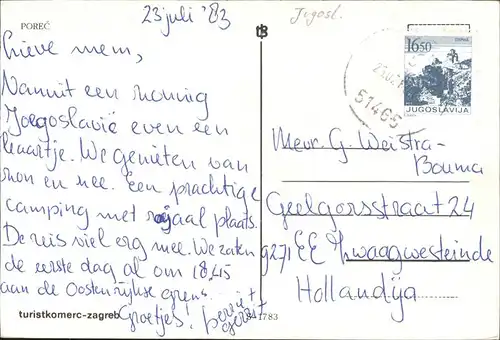 23 juli '83
Jugosl.
POREČ
Lieve mem,
Vannuit een zonnig
Joegoslavië even een
kaartje. We genieten van
zon en zee. Een prachtige
camping met rojaal plaats.
De reis viel erg mee. We zaten
de eerste dag al om 18.45
aan de Oostenrijkse grens.
Groetjes! berrit
gerrit
turistkomerc-zagreb
1783
16,50
JUGOSLAVIJA
51465
Mevr. G. Weistra-
Bouma
Geelgorsstraat 24
9271 EE Zwaagwesteinde
Hollandija